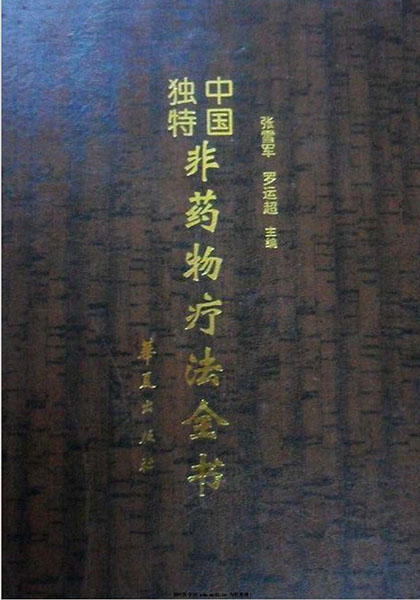 张雪军 罗运超 主编
中国
独特
非药物疗法全书
華夏出版社